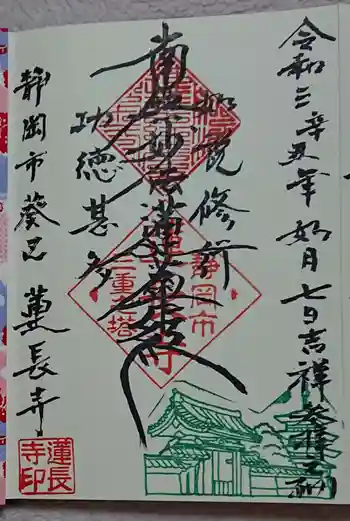 令和三辛丑年如月七日吉祥
如説修行
南無妙法蓮華経
功徳甚多
静岡市葵区 蓮長寺
静岡市
蓮長寺
三重之塔
蓮長
寺印